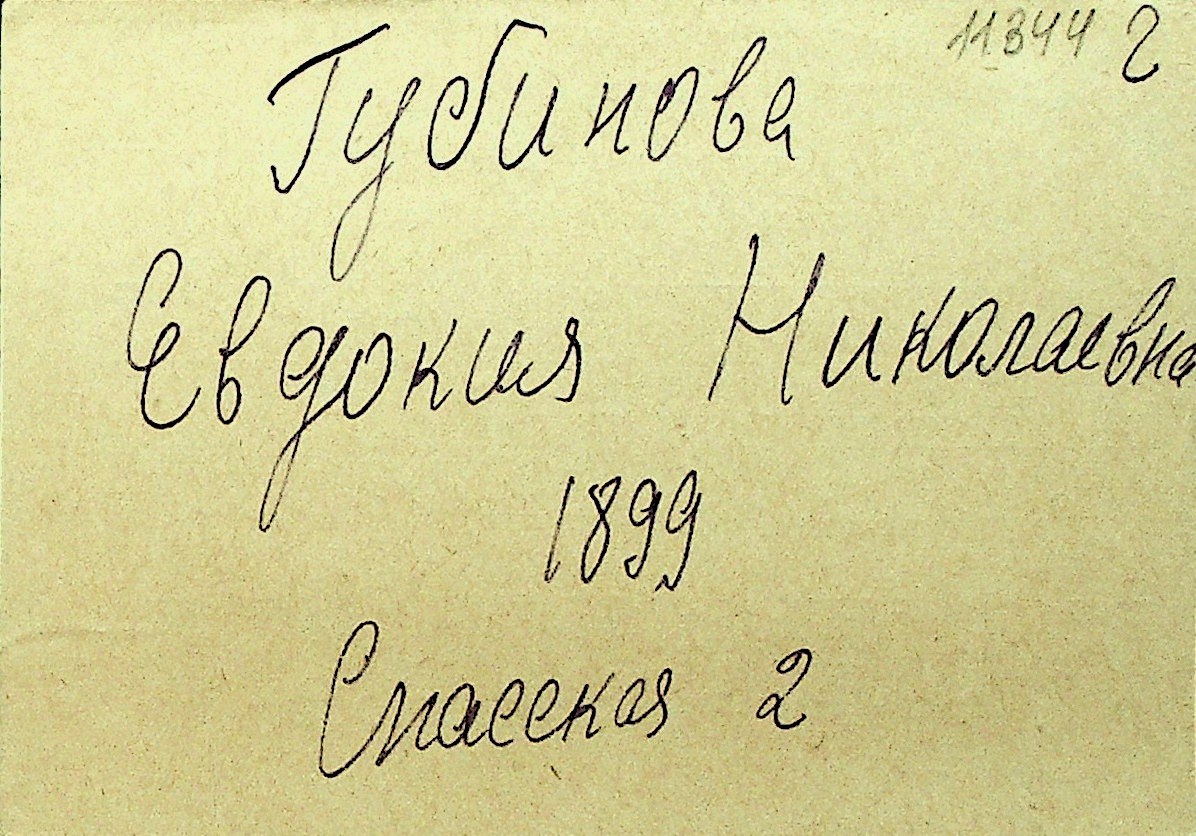 11344 2
Губинова
Евдокия Николаевна
1899
Спасская 2